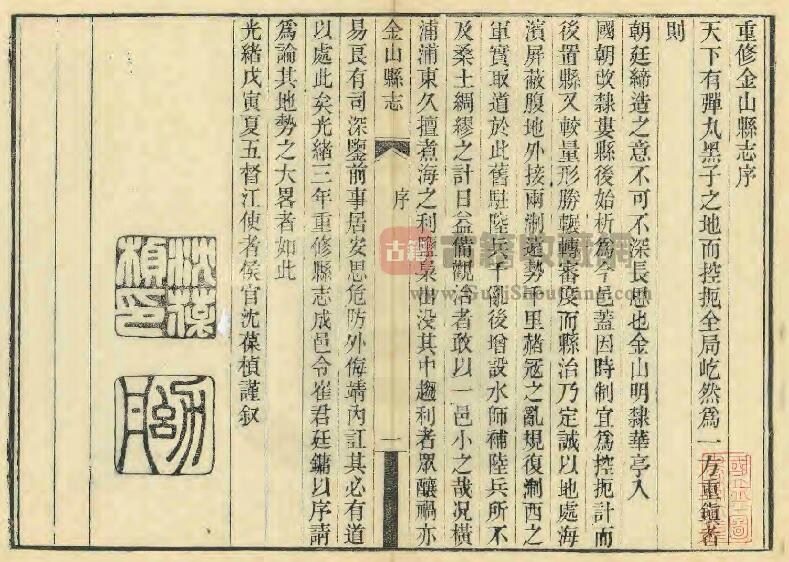 重修金山縣志序
天下有彈丸黑子之地而控扼全局屹然爲一方重鎭者
則
朝廷締造之意不可不深長思也金山明隸華亭入
國朝改隸婁縣後始析爲今邑蓋因時制宜爲控扼計而
後置縣又較量形勝輾轉審度而縣治乃定誠以地處海
濱屏蔽腹地外接兩浙遠勢千里赭冦之亂規復浙西之
軍實取道於此舊駐陸兵千亂後增設水師補陸兵所不
及桑土綢繆之計日益備觀治者敢以一邑小之哉况橫
浦浦東久擅煮海之利鹽梟出没其中趨利者眾釀禍亦
金山縣志
序
一
易良有司深鑒前事居安思危防外侮靖內訌其必有道
以處此矣光緒三年重修縣志成邑令崔君廷鏞以序請
爲論其地勢之大畧者如此
光緒戊寅夏五督江使者侯官沈葆楨謹叙
沈葆楨印
古籍收藏網
www.GujiShouCang.com